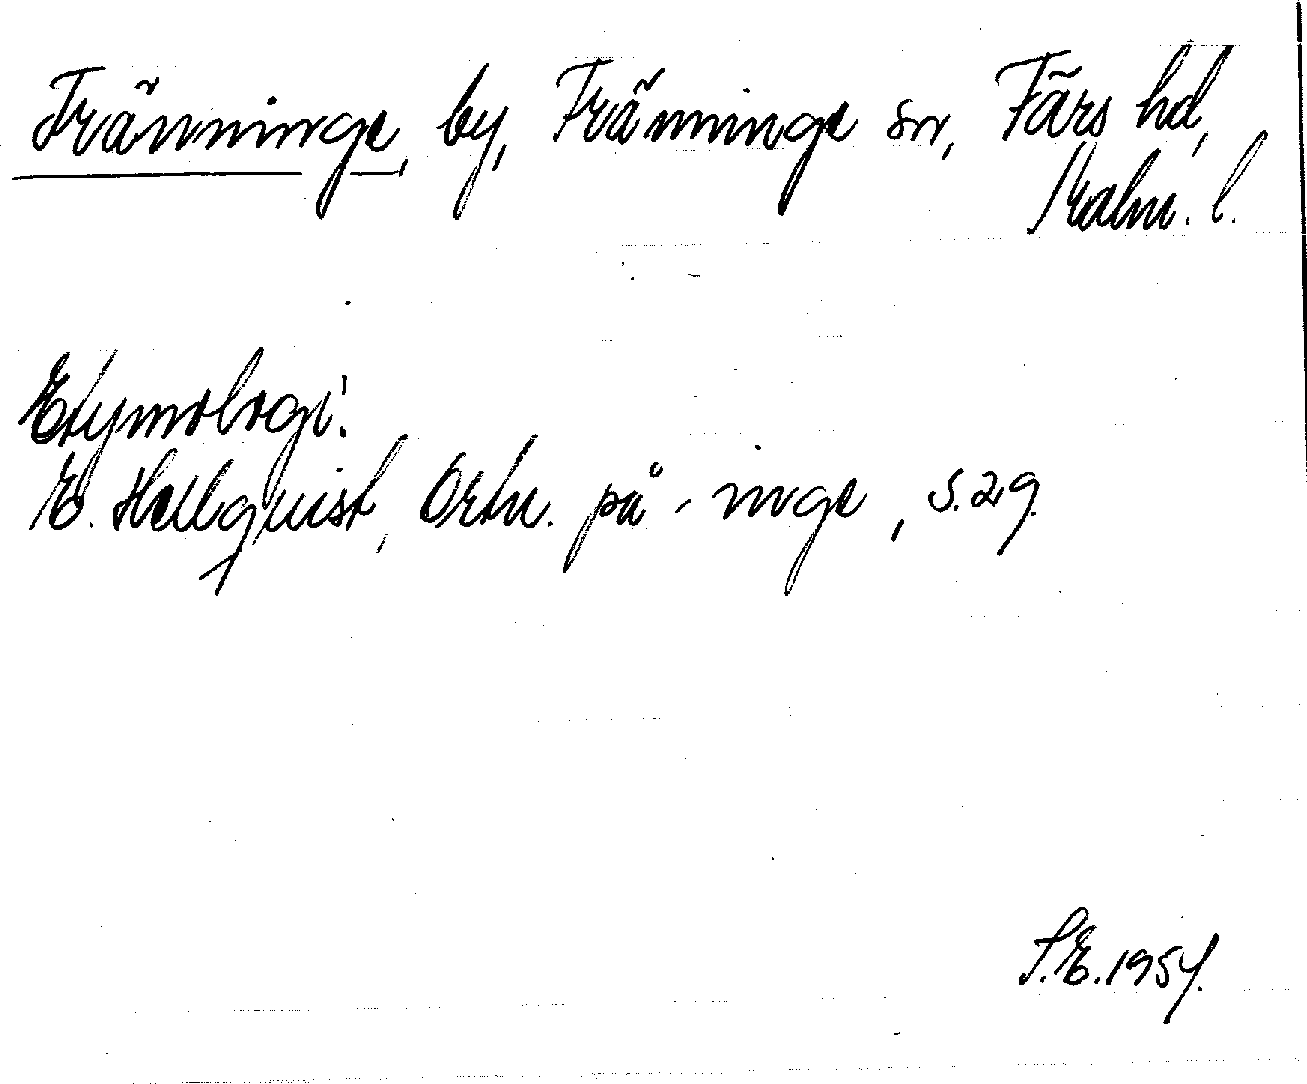 Fränninge, by, Fränninge sn, Färs hd,
Malm. l.
Etymologi:
E. Hellquist, Ortn. på -inge, s. 29.
S.E. 1954.